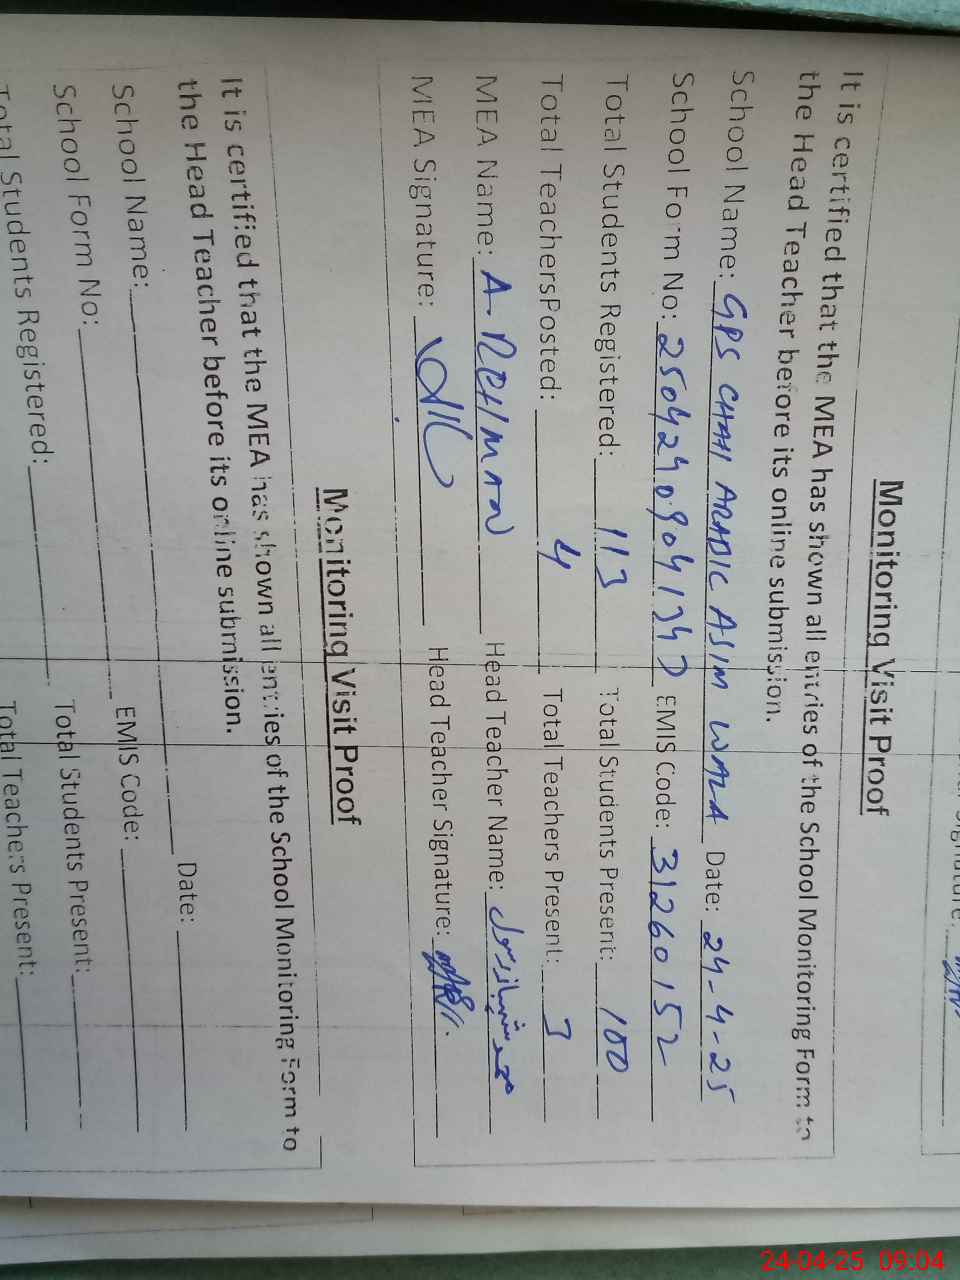 Signature:
Monitoring Visit Proof
It is certified that the MEA has shown all entries of the School Monitoring Form to
the Head Teacher before its online submission.
School Name: GPS CHAH ARABIC ASIM WALA Date: 24-4-25
School Form No: EMIS Code: 31260152
Total Students Registered: 113 Total Students Present: 100
Total TeachersPosted: 4 Total Teachers Present: 3
MEA Name: A. REHMAN Head Teacher Name:
MEA Signature: Head Teacher Signature:
Monitoring Visit Proof
It is certified that the MEA has shown all entries of the School Monitoring Form to
the Head Teacher before its online submission.
School Name: Date:
School Form No: EMIS Code:
Total Students Registered: Total Students Present:
Total Teachers Present:
24-04-25 09:04